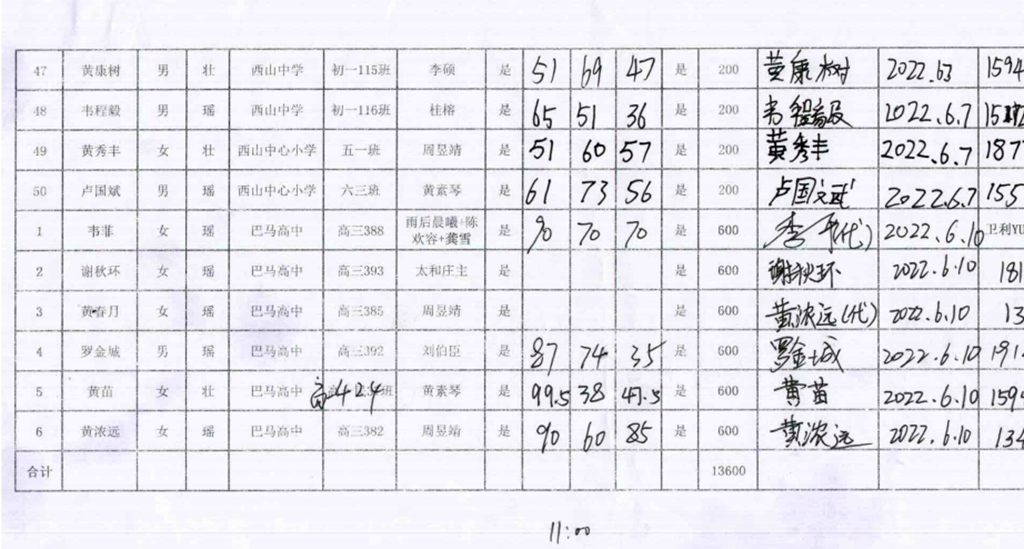 47 黄康树 男 壮 西山中学 初一115班 李硕 是 51 69 47 是 200 黄康树 2022.6.3 1594
48 韦程毅 男 瑶 西山中学 初一116班 桂榕 是 65 51 36 是 200 韦程毅 2022.6.7
49 黄秀丰 女 壮 西山中心小学 五一班 周昱靖 是 51 60 57 是 200 黄秀丰 2022.6.7 187
50 卢国斌 男 瑶 西山中心小学 六三班 黄素琴 是 61 73 56 是 200 卢国斌 2022.6.7 155
1 韦菲 女 瑶 巴马高中 高三388 雨后晨曦+陈
欢容+龚雪 是 90 70 70 是 600 (代) 2022.6.10 卫利YU
2 谢秋环 女 瑶 巴马高中 高三393 太和庄主 是 是 600 谢秋环 2022.6.10 181
3 黄春月 女 瑶 巴马高中 高三385 周昱靖 是 是 600 黄浓远(代) 2022.6.10 13
4 罗金城 男 瑶 巴马高中 高三392 刘伯臣 是 87 74 35 是 600 罗金城 2022.6.10 191
5 黄苗 女 壮 巴马高中 高424班 黄素琴 是 99.5 38 47.5 是 600 黄苗 2022.6.10 159
6 黄浓远 女 瑶 巴马高中 高三382 周昱靖 是 90 60 85 是 600 黄浓远 2022.6.10 134
合计 13600
11:00